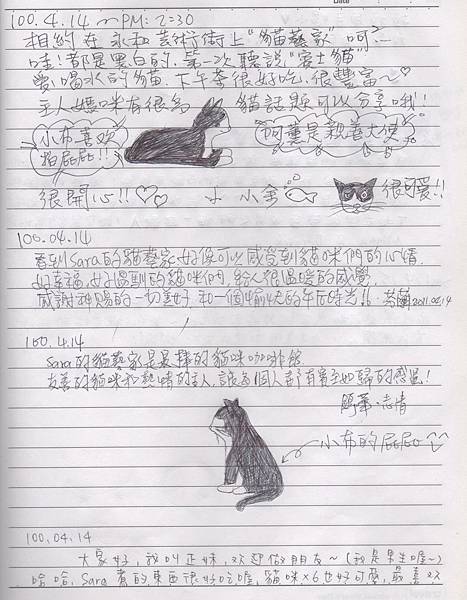 Date
100.4.14 ~ PM: 2:30
相約在永和芸術街上"貓藝家" 呵~
哇!都是黑白的,第一次聽說"賓士貓"
愛喝水的貓,下午茶很好吃,很豐富~♡
主人媽咪有很多 貓話題可以分享哦!!
小布喜欢
拍屁屁!!
阿薰是親善大使
很開心!!♡♡ 小金 很可愛!!
100.04.14
看到Sara的貓藝家,好像可以感受到貓咪們的心情.
好幸福,好溫馴的貓咪們,給人很溫暖的感覺,
感謝神賜的一切美好,和一個愉快的午后時光!! 2011.04.14
100.4.14
Sara的貓藝家是最棒的貓咪咖啡館
友善的貓咪和熱情的主人,讓每個人都有賓至如歸的感覺!
志倩
小布的屁屁
100.04.14
大家好,我叫正妹,欢迎做朋友~(我是男生喔~)
哈哈,Sara 煮的東西很好吃喔,貓咪x6也好可愛,最喜欢